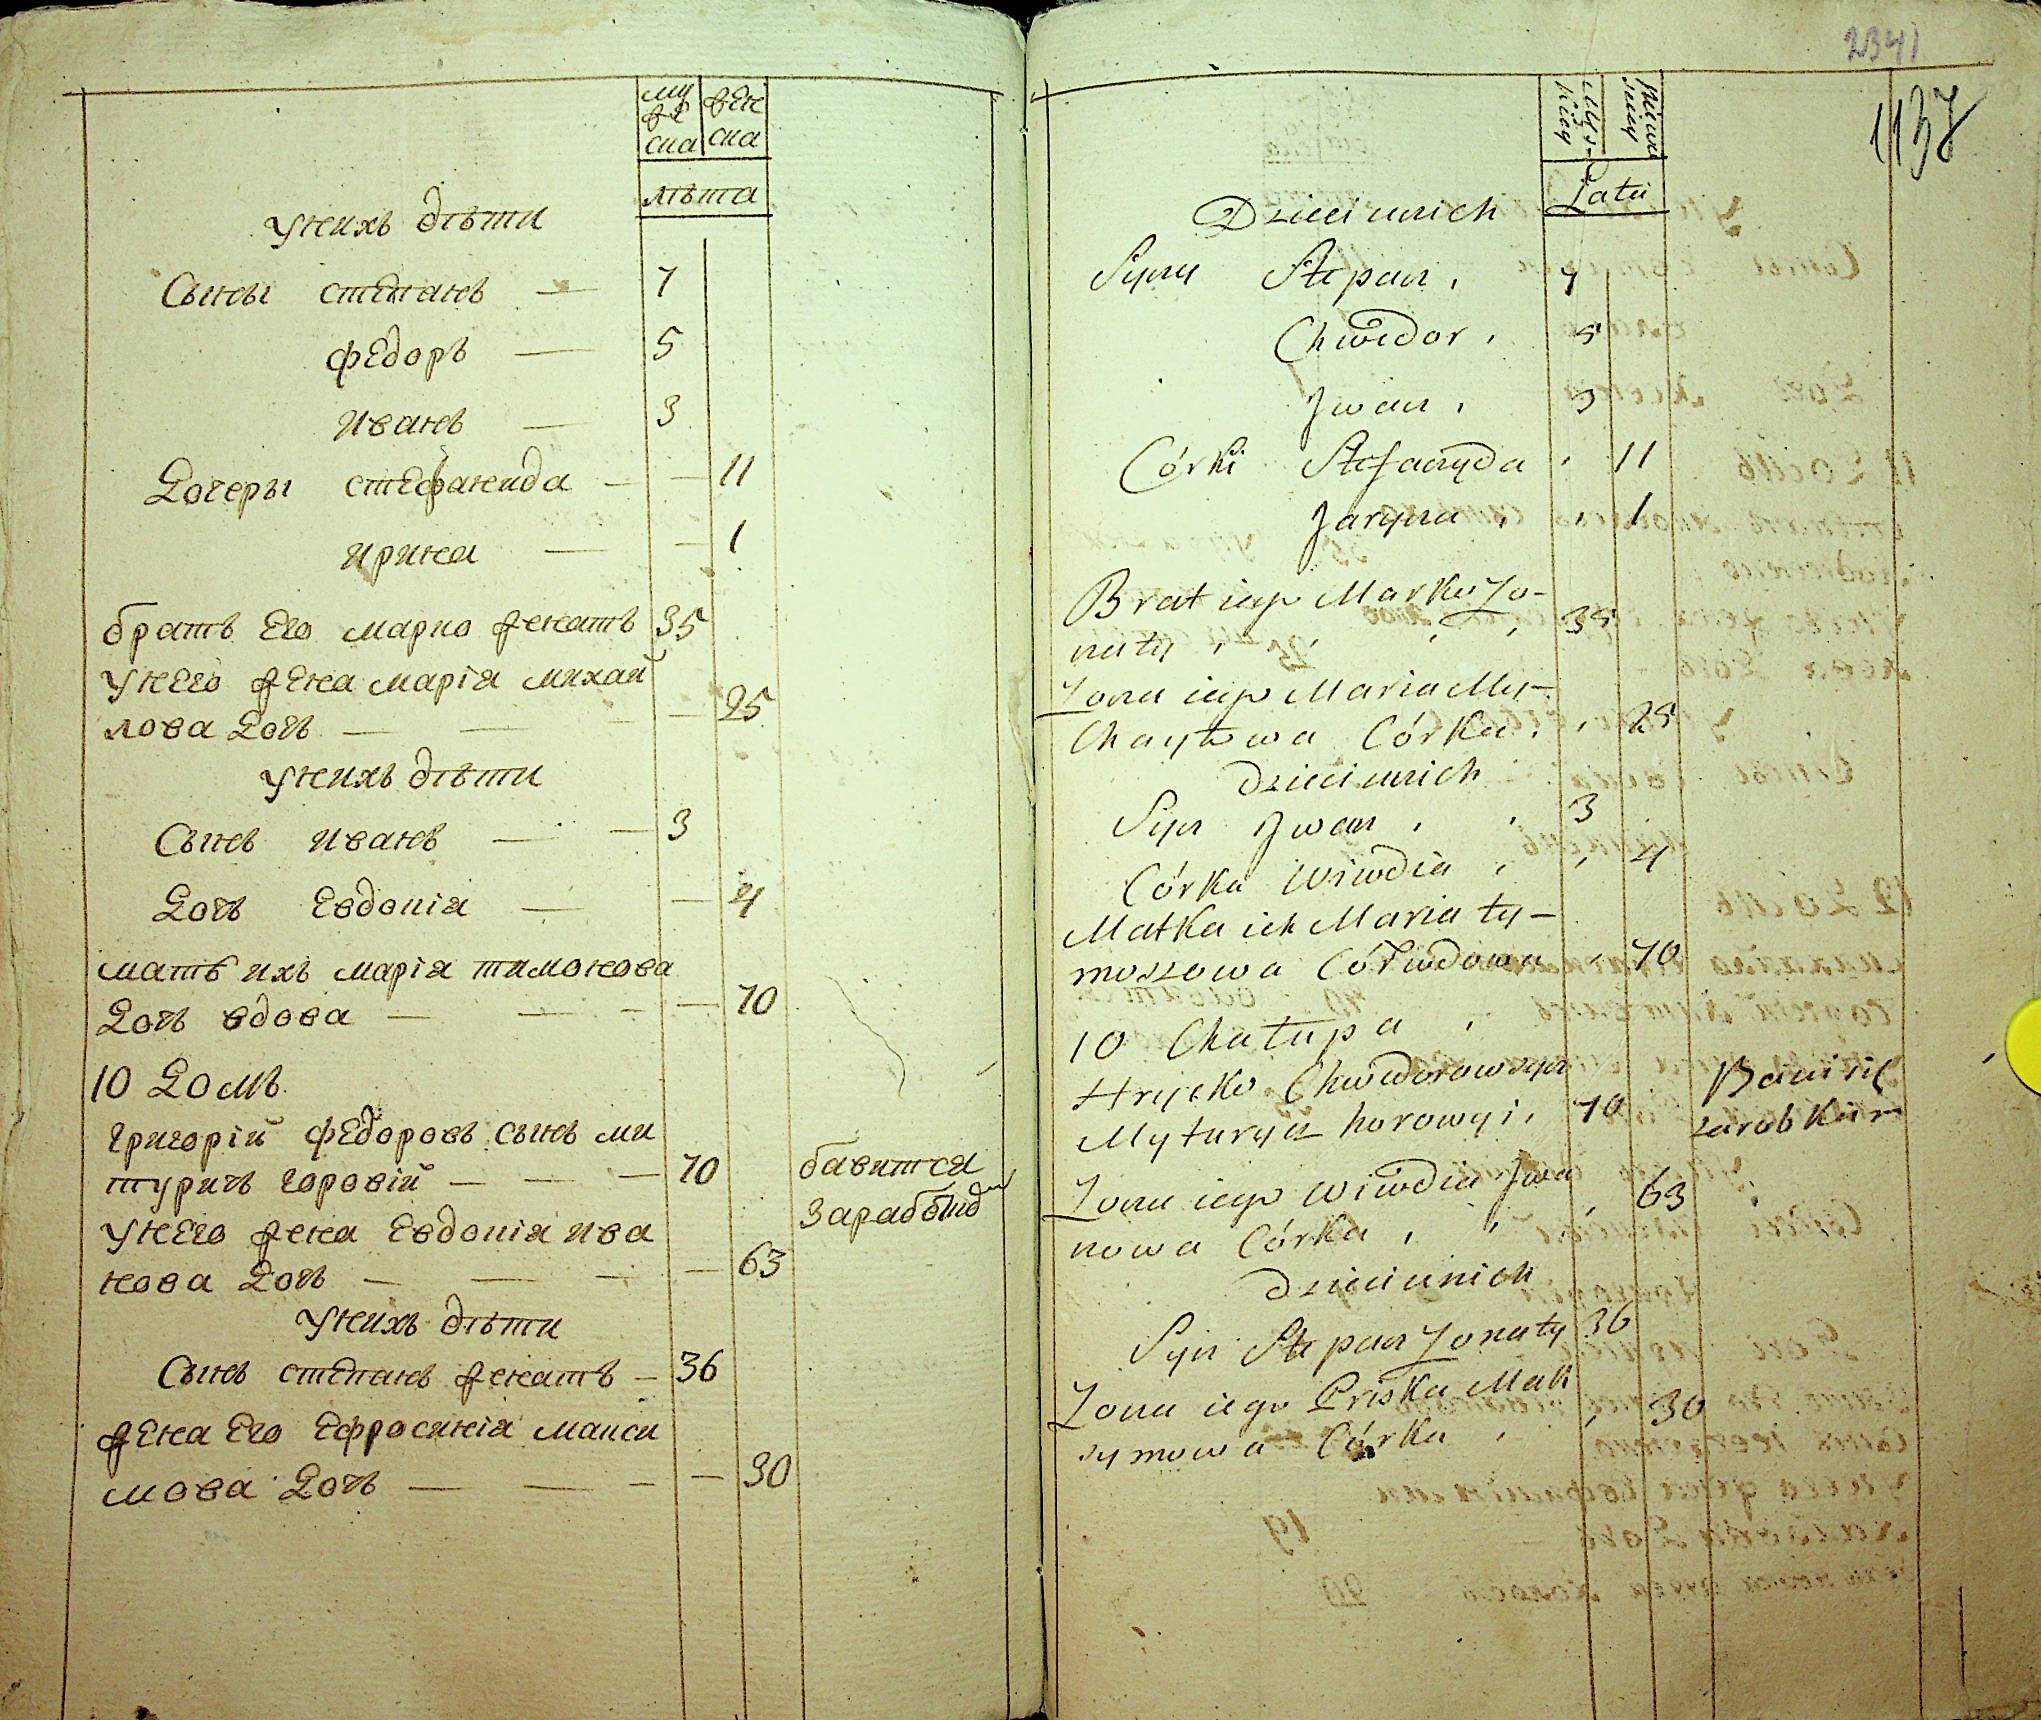 му
же
ска
жен
ска
лѣта
У нихъ дѣти
Сыны степанъ — 7
федоръ — 5
иванъ — 3
Дочеры стефанида — — 11
ирина — — 1
братъ его марко женатъ 35
У него жена марія михай
лова Дочь — — — — 25
У нихъ дѣти
Сынъ иванъ — — 3
Дочь Евдокія — — 4
мать ихъ марія тимохова
Дочь вдова — — — — 70
10 Домъ
Григорій федоровъ сынъ ми
туричъ хоровій — — — 70 бавится
заработко
У него жена Евдокія ива
нова Дочь — — — — 63
У нихъ дѣти
Сынъ степанъ женатъ — 36
жена Его Ефросинія макси
мова Дочь — — — — 30
2341
1137
Męz-
kiey
Latu
Dzieci unich
Syny Stepan , 7
Chwedor , 5
Jwan , 3
Córki Stefanyda , 11
Jaryna , , 1
Brat iego Marko Żo-
naty , , , , 35
Żona iego Maria My-
chayłowa Córka , , 25
Dzieci unich
Syn Jwan , , 3
Córka Wiwdia , , 4
Matka ich Maria ty-
moszowa Cór wdowa , 70
10 Chałupa ,
Hryćko Chwedorow syn
Myturycz horowyi , 70 Bawi się
zarobkiem
Żona iego Wiwdia Jwa
nowa Córka , , , 63
Dzieci unich
Syn Stepan Żonaty 36
Żona iego Priska Mak
symowa Córka , , 30